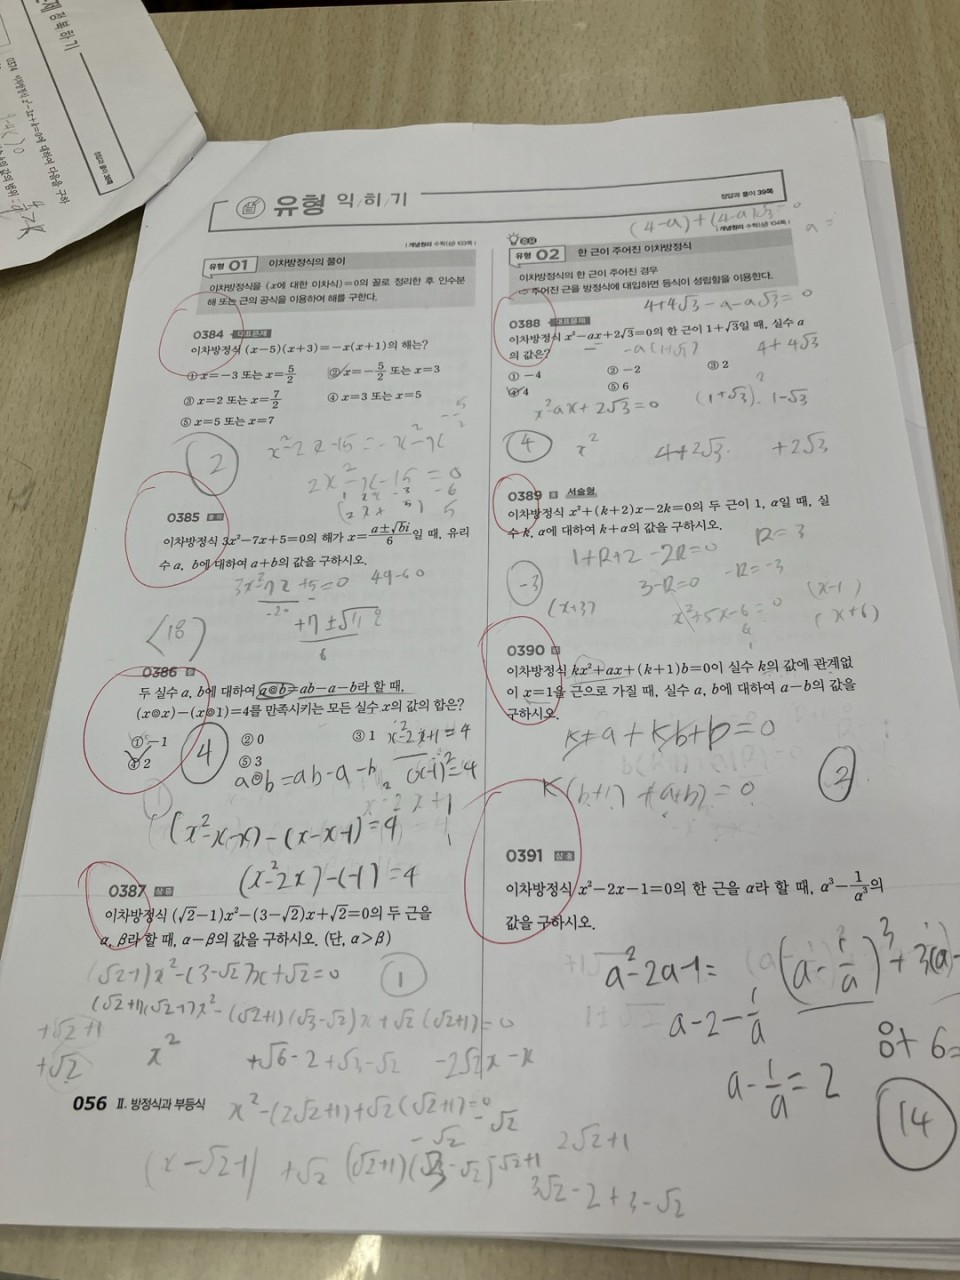 정복하기
0374 이차방정식 x²-3x+k=0에 대하여 다음을 구하
정답과 풀이 39쪽
유형 익히기
(4-a)+(4-a)√3=0
a=
개념원리 수학(상) 103쪽
유형 01 이차방정식의 풀이
이차방정식을 (x에 대한 이차식)=0의 꼴로 정리한 후 인수분
해 또는 근의 공식을 이용하여 해를 구한다.
0384 대표문제
이차방정식 (x-5)(x+3)=-x(x+1)의 해는?
① x=-3 또는 x=5/2
② x=-5/2 또는 x=3
③ x=2 또는 x=7/2
④ x=3 또는 x=5
⑤ x=5 또는 x=7
x²-2x-15=-x²-x
2
2x²-x-15=0
0385
이차방정식 3x²-7x+5=0의 해가 x=(a±√b i)/6일 때, 유리
수 a, b에 대하여 a+b의 값을 구하시오.
3x²-7x+5=0 49-60
+7±√11 i
6
(18)
0386
두 실수 a, b에 대하여 a◎b=ab-a-b라 할 때,
(x◎x)-(x◎1)=4를 만족시키는 모든 실수 x의 값의 합은?
① -1
② 0
③ 1
④ 2
⑤ 3
4
x²-2x+1=4
(x-1)²=4
a◎b=ab-a-b
x²-2x+1
(x²-x-x)-(x-x-1)=4
(x²-2x)-(-1)=4
0387 상중
이차방정식 (√2-1)x²-(3-√2)x+√2=0의 두 근을
α, β라 할 때, α-β의 값을 구하시오. (단, α>β)
(√2-1)x²-(3-√2)x+√2=0
1
+√2+1
+√2
x²
+√6-2+√3-√2 -2√2x-x
x²-(2√2+1)+√2(√2+1)=0
-√2
2√2+1
(x-√2-1)
+√2
3√2-2+3-√2
056 Ⅱ. 방정식과 부등식
중요
개념원리 수학(상) 104쪽
유형 02 한 근이 주어진 이차방정식
이차방정식의 한 근이 주어진 경우
⇨ 주어진 근을 방정식에 대입하면 등식이 성립함을 이용한다.
4+4√3-a-a√3=0
0388 대표문제
이차방정식 x²-ax+2√3=0의 한 근이 1+√3일 때, 실수 a
의 값은?
-a(1+√3)
4+4√3
① -4
② -2
③ 2
④ 4
⑤ 6
x²-ax+2√3=0
(1+√3)²
1-√3
4
x²
4+2√3
+2√3
0389 중 서술형
이차방정식 x²+(k+2)x-2k=0의 두 근이 1, α일 때, 실
수 k, α에 대하여 k+α의 값을 구하시오.
1+k+2-2k=0
k=3
-3
3-k=0
-k=-3
(x+3)
x²+5x-6=0
(x-1)
(x+6)
0390
이차방정식 kx²+ax+(k+1)b=0이 실수 k의 값에 관계없
이 x=1을 근으로 가질 때, 실수 a, b에 대하여 a-b의 값을
구하시오.
k+a+kb+b=0
k(b+1)+(a+b)=0
2
0391 상중
이차방정식 x²-2x-1=0의 한 근을 α라 할 때, α³-1/α³의
값을 구하시오.
a²-2a-1=
(a-1/a)³+3(a-
a-2-1/a
8+6=
a-1/a=2
14